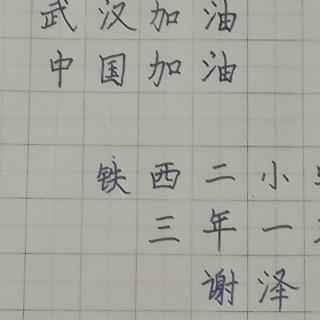 武汉加油
中国加油
铁西二小
三年一
谢泽